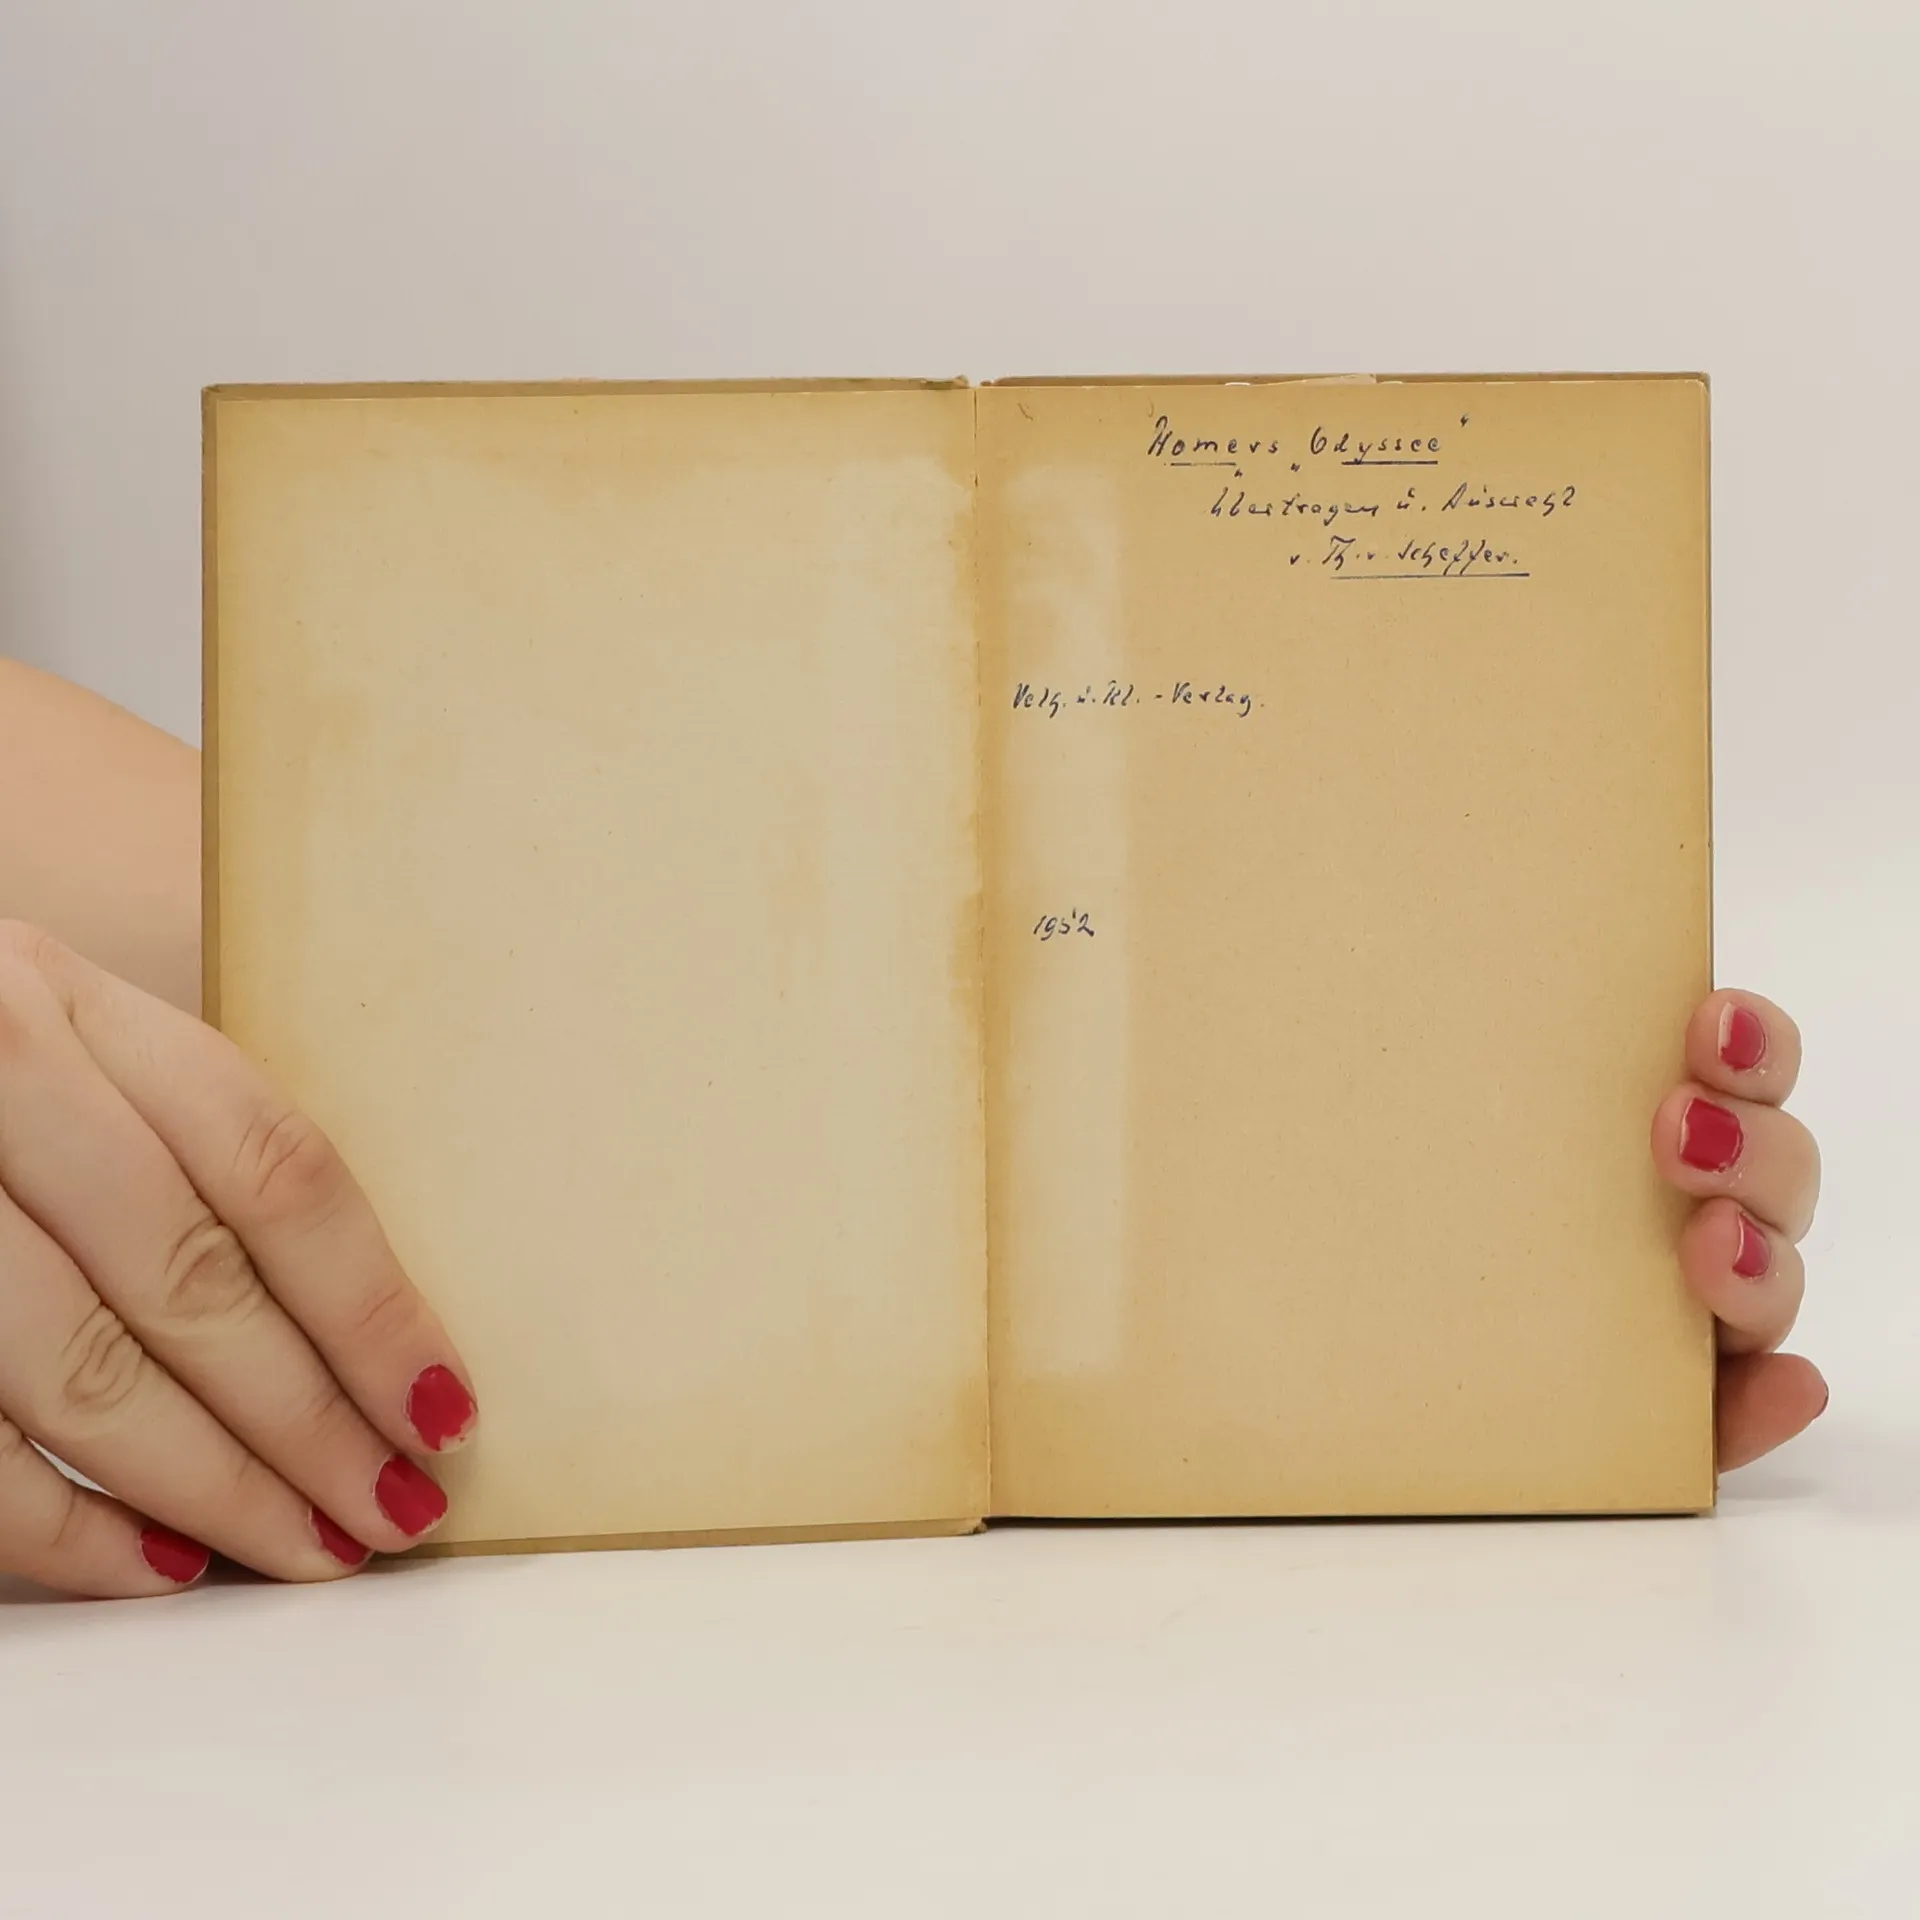 Homers „Odyssee"
Übertragen u. Auswahl
v. Th. v. Scheffer.
Velh. u. Kl. - Verlag.
1952